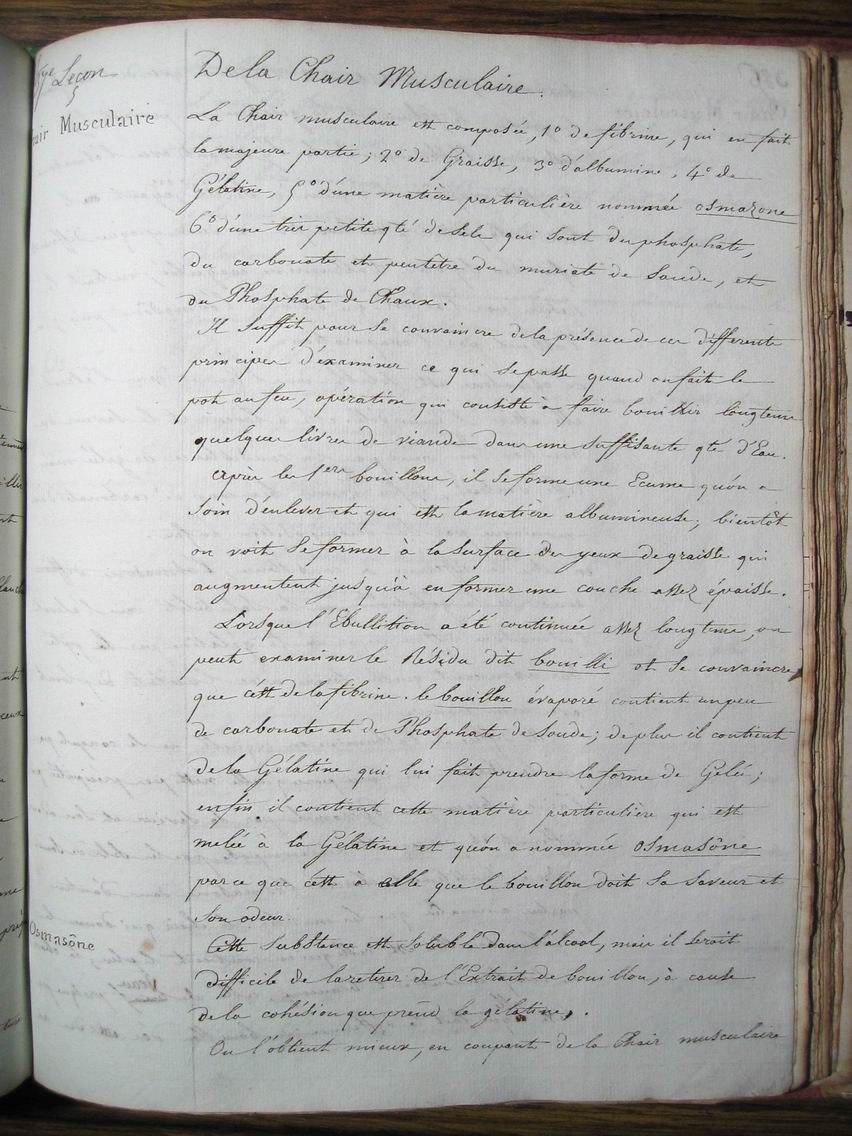 Leçon
De la Chair Musculaire.
Musculaire
La Chair musculaire est composée, 1º de fibrine, qui en fait
la majeure partie; 2º de Graisse, 3º d'albumine, 4º de
Gélatine, 5º d'une matière particulière nommée osmazone
6º d'une tres petite qté de sels qui sont du phosphate,
du carbonate et peutetre du muriate de Soude, et
du Phosphate de Chaux.
Il suffit pour se convaincre de la présence de ces differents
principes d'examiner ce qui se passe quand on fait le
pot au feu, opération qui consiste à faire bouillir longtems
quelques livres de viande dans une suffisante qté d'Eau.
après les 1ers bouillons, il se forme une Ecume qu'on a
soin d'enlever et qui est la matière albumineuse; bientôt
on voit se former à la surface des yeux de graisse qui
augmentent jusqu'à en former une couche assez épaisse.
Lorsque l'Ebullition a été continuée assez longtems, on
peut examiner le Résidu dit bouilli et se convaincre
que c'est de la fibrine. le bouillon évaporé contient un peu
de carbonate et de Phosphate de Soude; de plus il contient
de la Gélatine qui lui fait prendre la forme de Gelée;
enfin il contient cette matière particuliere qui est
melée à la Gélatine et qu'on a nommée osmasône
parce que c'est a elle que le bouillon doit sa saveur et
son odeur.
Osmasône
Cette substance est soluble dans l'alcool, mais il seroit
difficile de la retirer de l'Extrait de bouillon, à cause
de la cohésion que prend la gélatine.
On l'obtient mieux, en coupant de la Chair musculaire